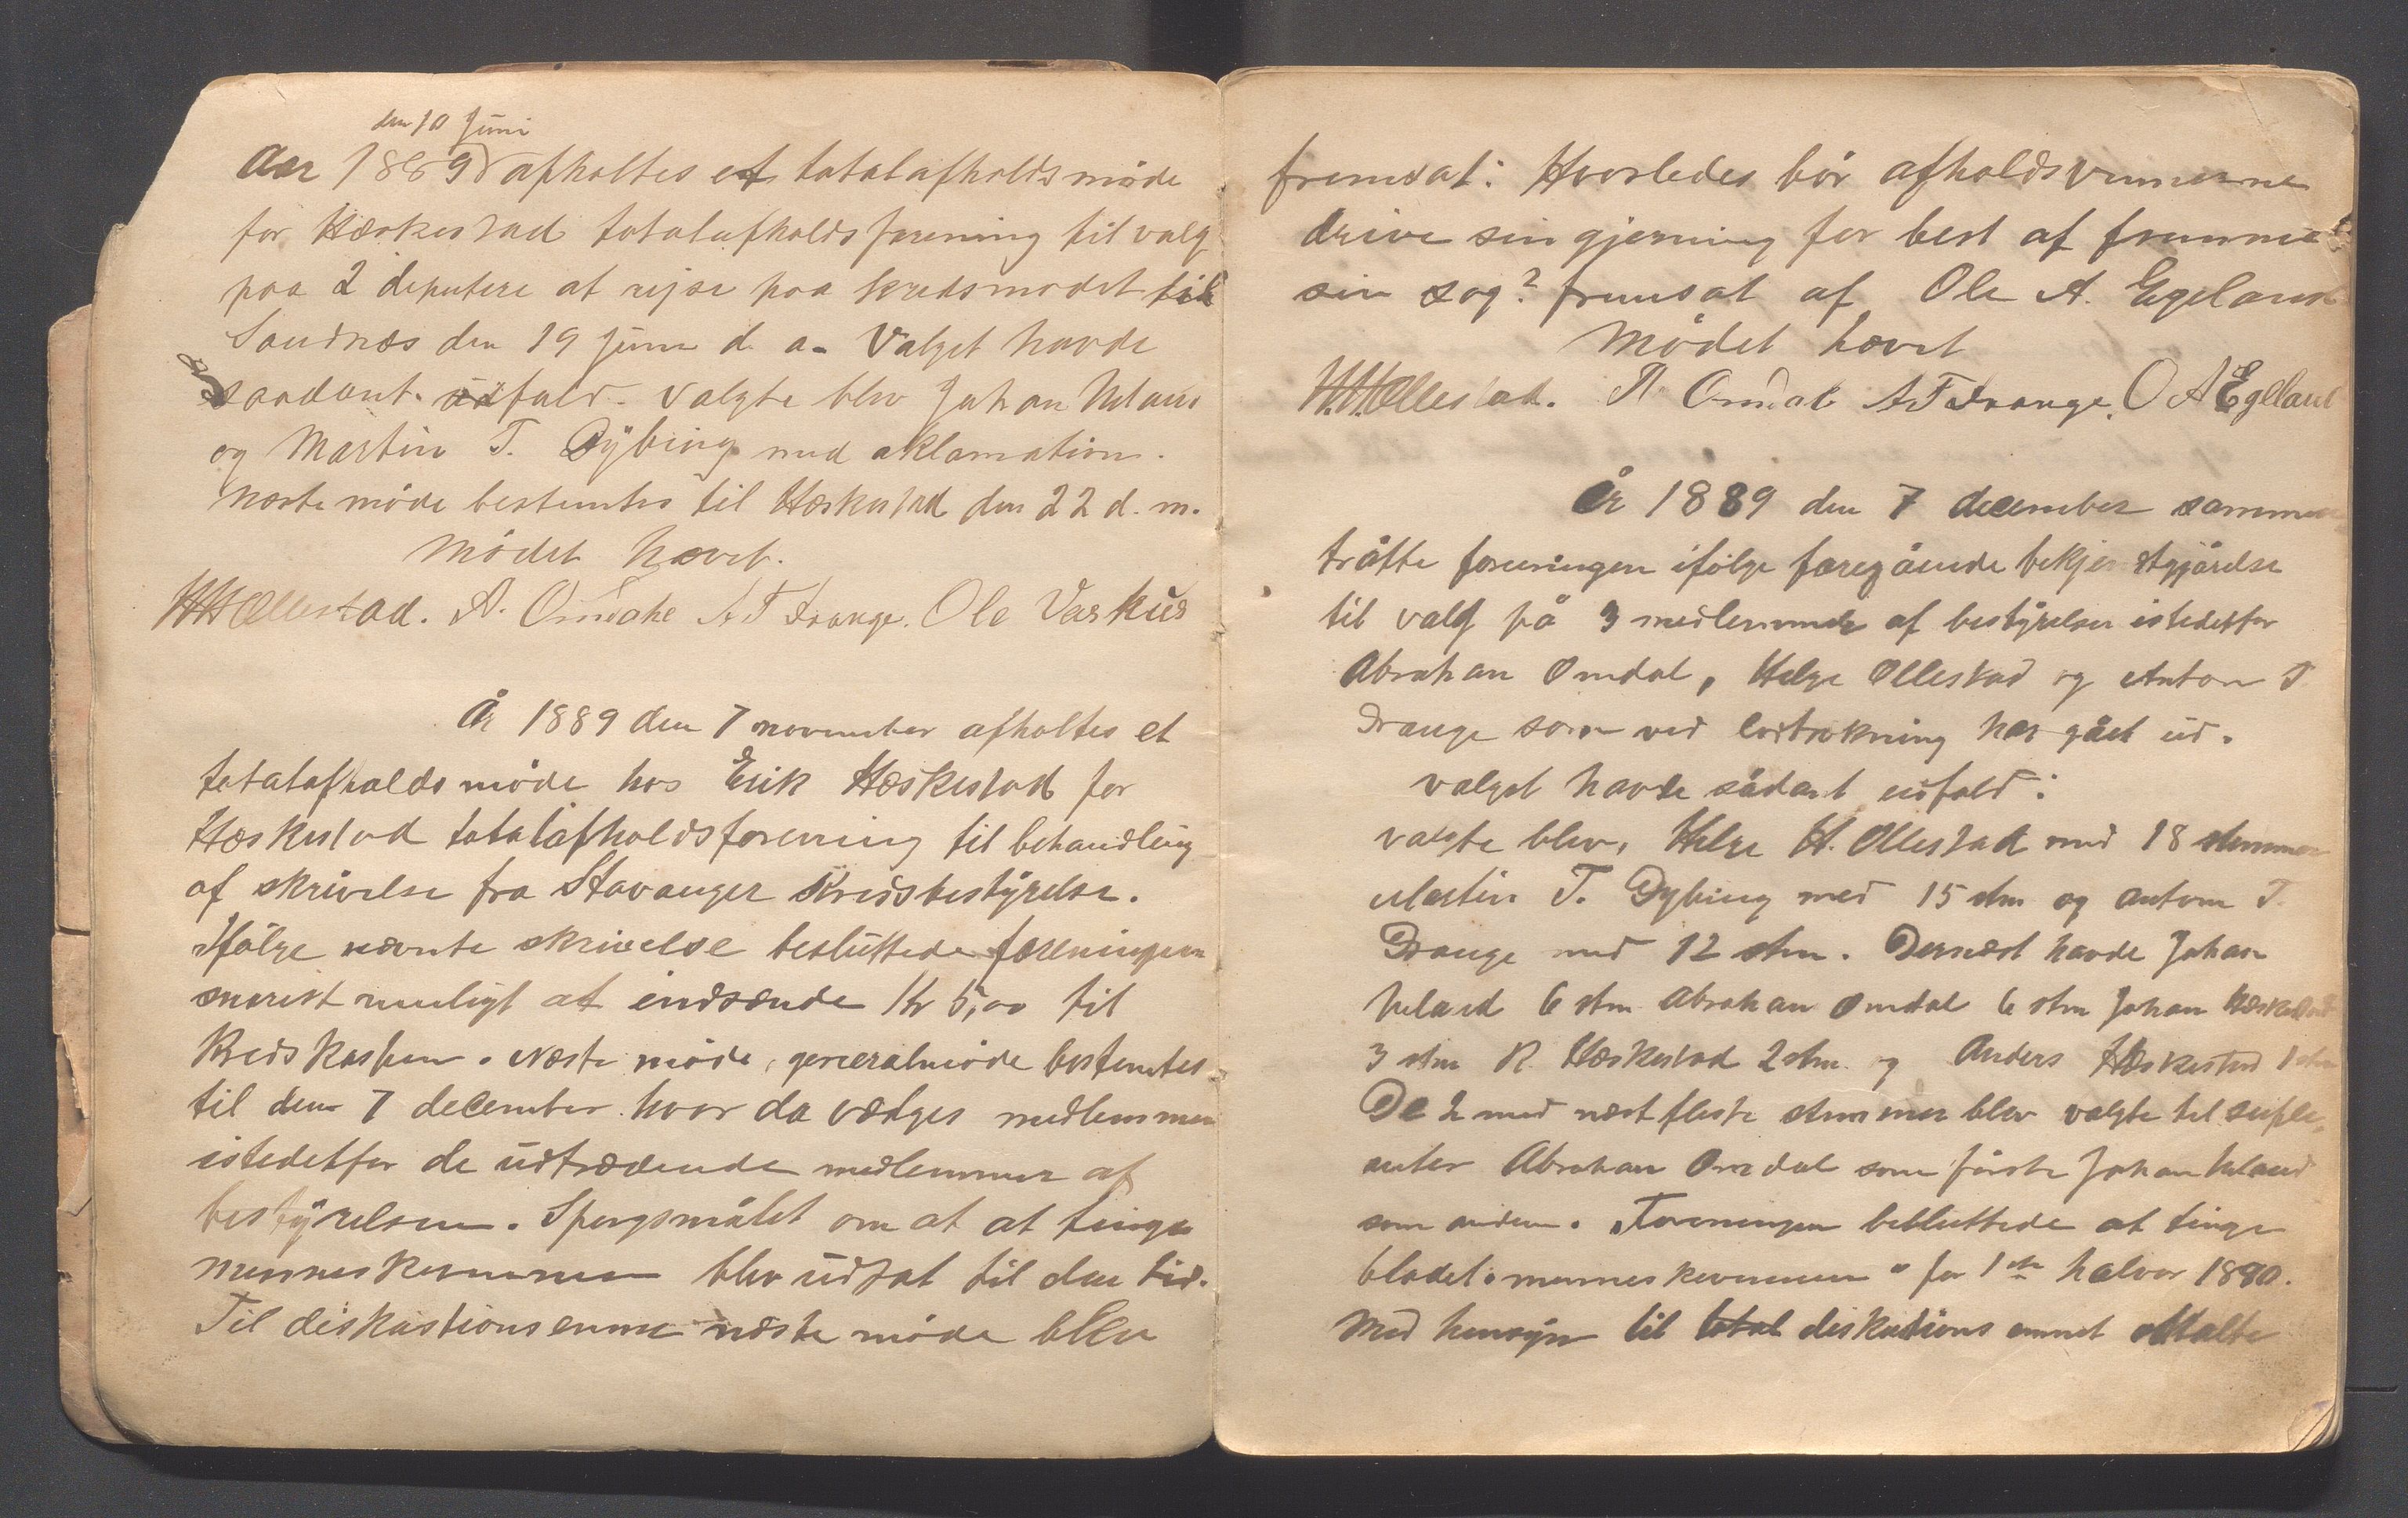 den 10 Juni
Aar 1889 afholtes et totalafholdsmøde
for Hæskestad totalafholdsforening til valg
paa 2 deputere at rejse paa kredsmødet til
Sandnæs den 19 Juni d. a. Valget havde
saadant udfald. Valgte blev Johan
og Martin T. Dybing med aklamation.
næste møde bestemtes til Hæskestad den 22 d. m.
Mødet hævet.
HHOllestad. A. Omdahl A T Drange. Ole Vaskus
År 1889 den 7 november afholtes et
totalafholdsmøde hos Erik Hæskestad for
Hæskestad totalafholdsforening til behandling
af skrivelse fra Stavanger Kredsbestyrelse.
Ifølge nævnte skrivelse besluttede foreningen
snarest muligt at indsænde Kr 5,00 til
Kredskassen. Næste møde, generalmøde bestemtes
til den 7 december hvor da vælges medlemmer
istedetfor de udtrædende medlemmer af
bestyrelsen. Spørgsmålet om at at tinge
menneskevennen blev udsat til den tid.
Til diskustionsemne næste møde blev
fremsat: Hvorledes bør afholdsvennerne
drive sin gjerning for best af fremme
sin sag? fremsat af Ole A. Egeland
Mødet hævet
HHOllestad. A Omdal A T Drange. O A Egeland
År 1889 den 7 december sammen
tråtte foreningen ifølge foregående bekjentgjørelse
til valg på 3 medlemmer af bestyrelsen istedetfor
Abraham Omdal, Helge Ollestad og Anton T
Drange som ved lodtrækning har gået ud.
valget havde sådant udfald:
valgte blev, Helge H. Ollestad med 18 stemmer
Martin T. Dybing med 15 stm og Anton T.
Drange med 12 stm. Dernæst havde Johan
6 stm Abraham Omdal 6 stm Johan Hæskestad
3 stm R. Hæskestad 2 stm og Anders Hæskestad 1 stm
De 2 med næst fleste stemmer blev valgte til suple
anter Abraham Omdal som første Johan
som anden. Foreningen besluttede at tinge
bladet "menneskevennen" for 1ste halvår 1890.
Med hensyn til total diskutions emnet